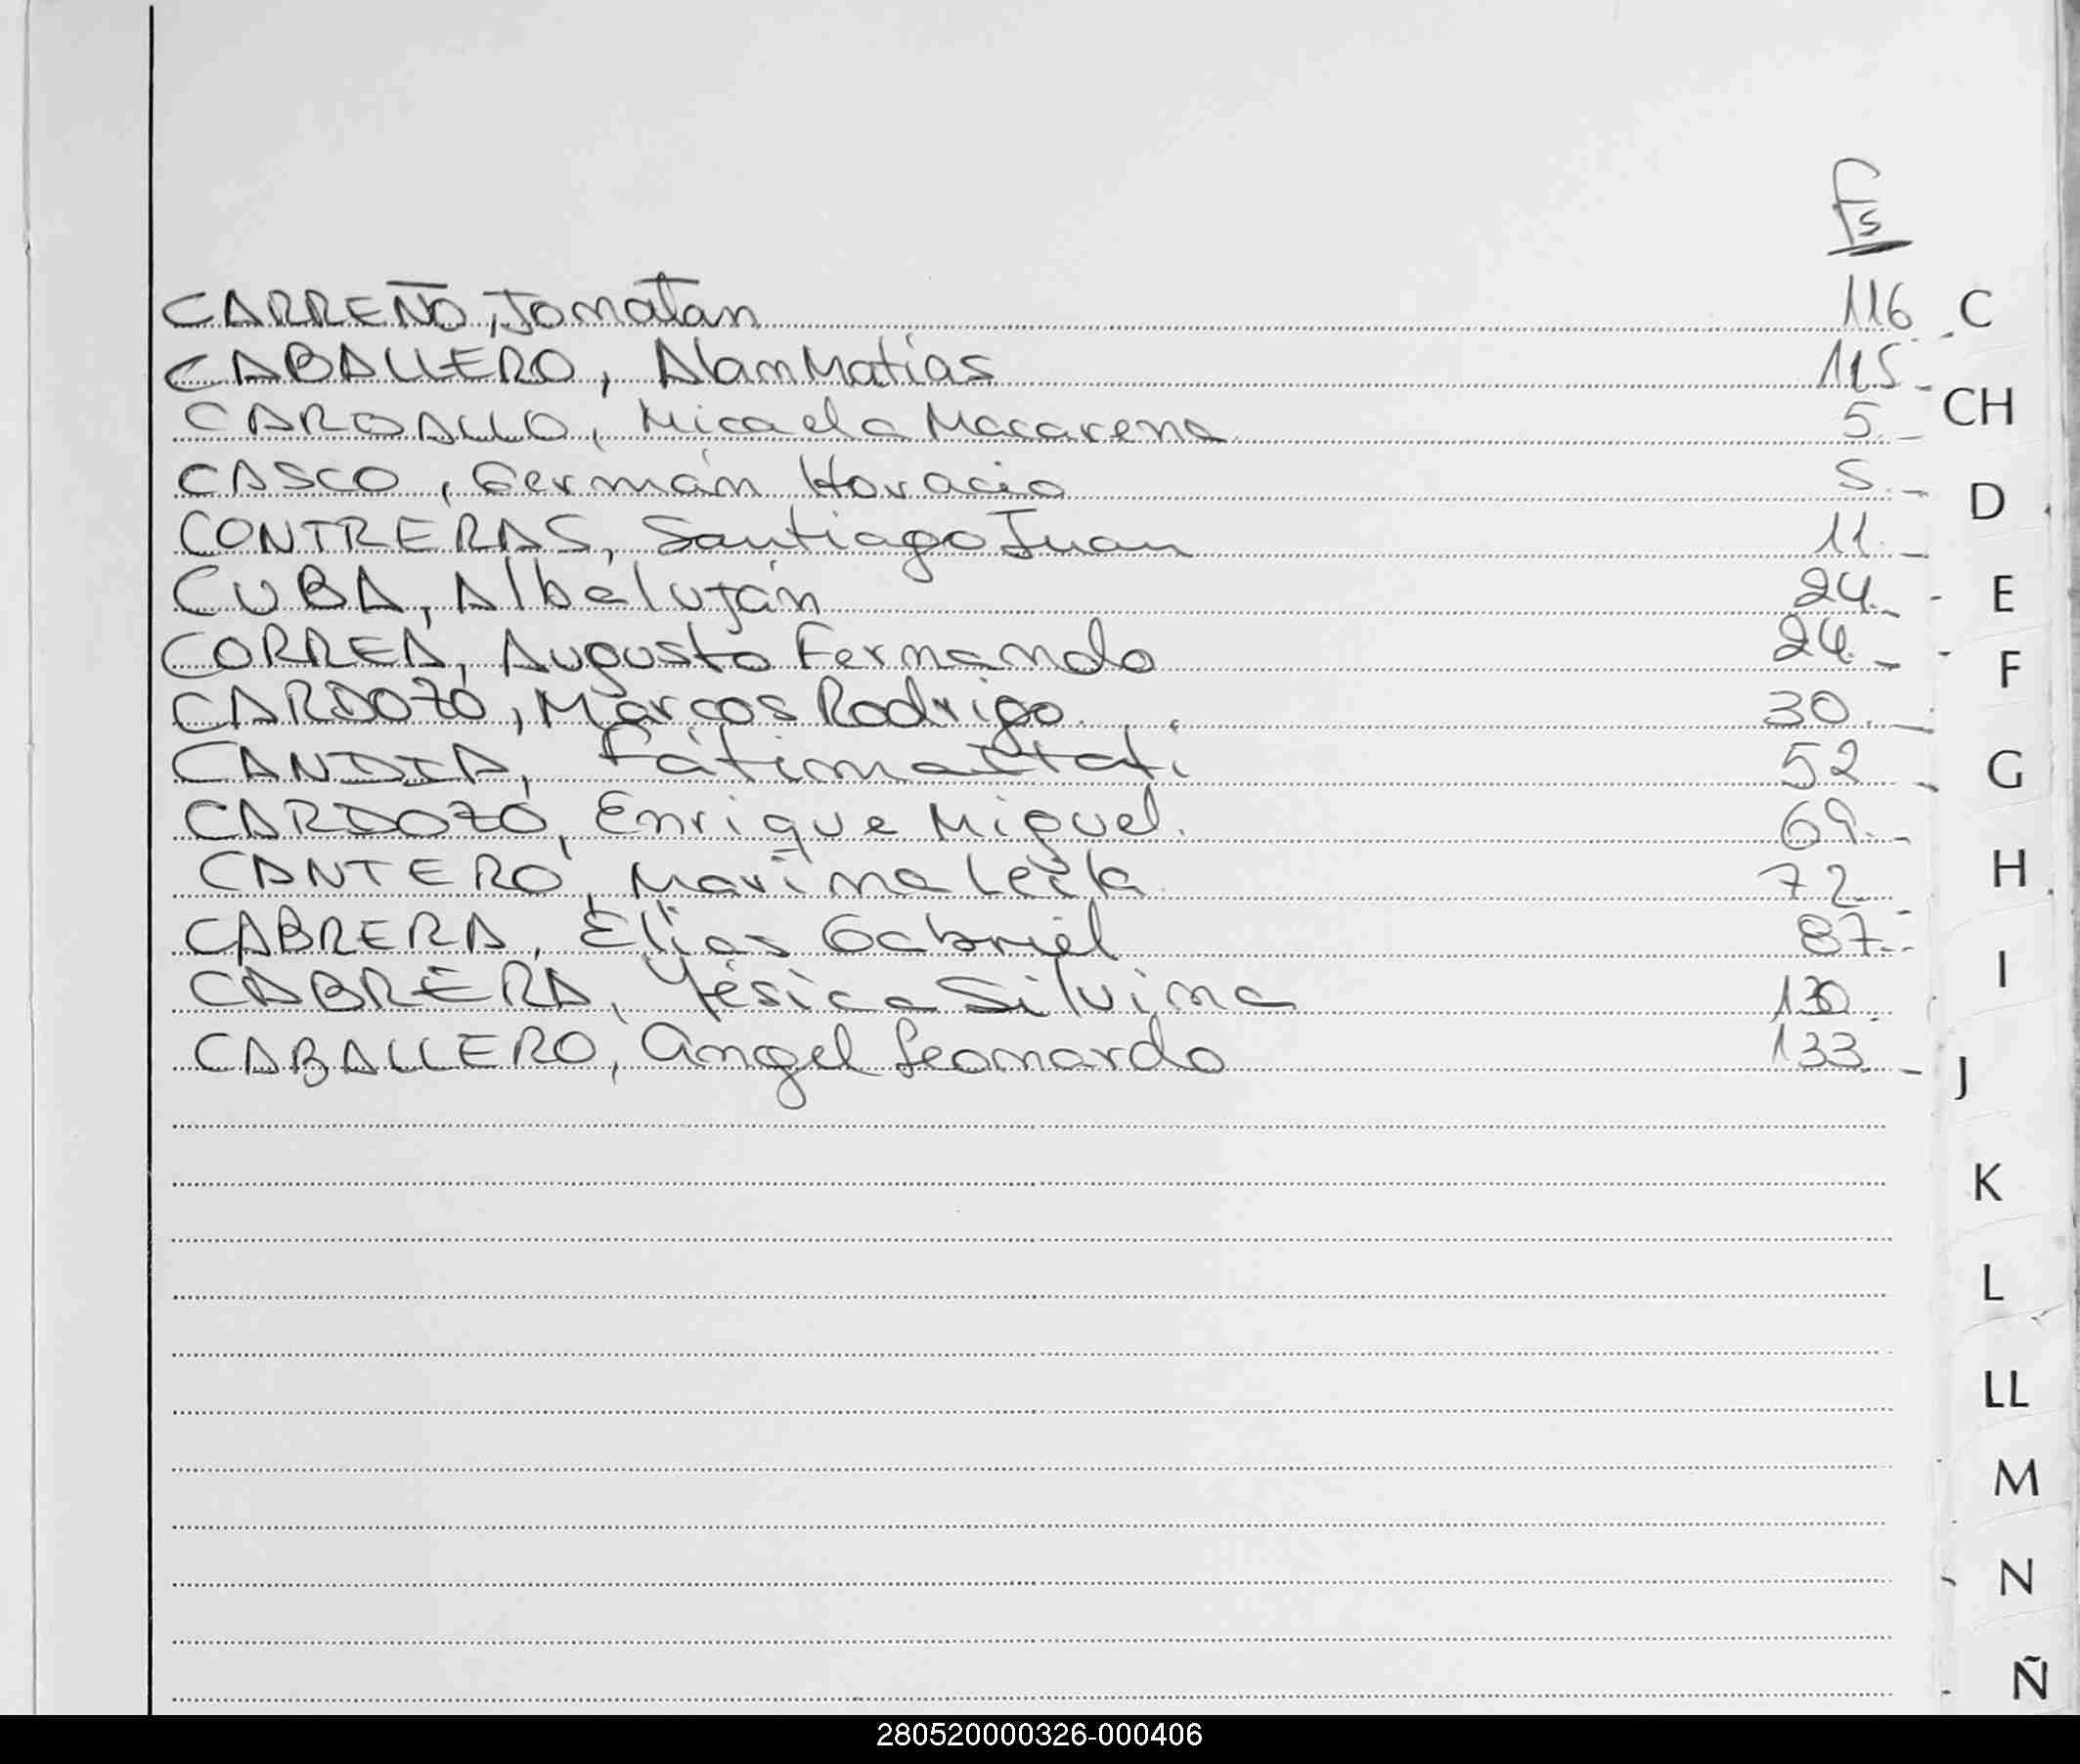 Fs
CARREÑO, Jonatan 116 C
CABALLERO, Alan Matías 115
CARBALLO, Micaela Macarena 5 CH
CASCO, Germán Horacio 5
CONTRERAS, Santiago Juan 11 D
CUBA, Alba Luján 24 E
CORREA, Augusto Fernando 24 F
CARDOZO, Marcos Rodrigo 30
CANDIA, Fátima Itatí 52 G
CARDOZO, Enrique Miguel 69
CANTERO, Marina Leila 72 H
CABRERA, Elías Gabriel 87
CABRERA, Yésica Silvina 130 I
CABALLERO, Angel Leonardo 133 J
K
L
LL
M
N
Ñ
280520000326-000406